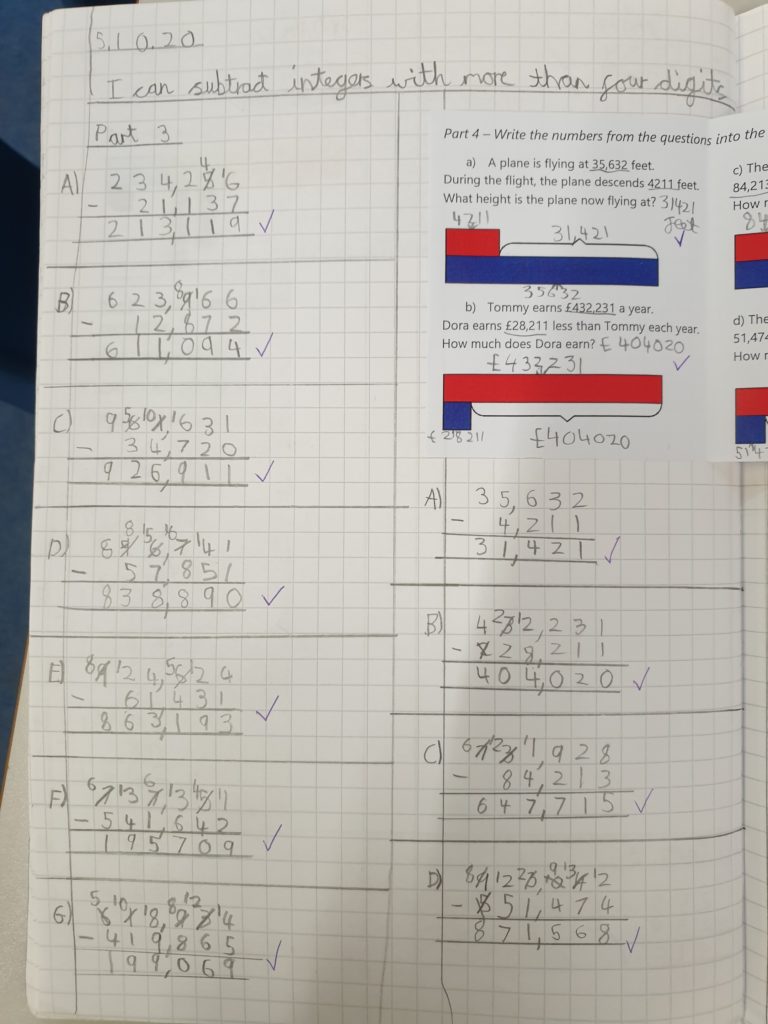 5.10.20
I can subtract integers with more than four digits
Part 3
A) 234,256
- 21,137
213,119 ✓
B) 623,966
- 12,872
611,094 ✓
C) 961,631
- 34,720
926,911 ✓
D) 896,741
- 57,851
838,890 ✓
E) 924,624
- 61,431
863,193 ✓
F) 737,351
- 541,642
195709 ✓
G) 618,934
- 419,865
199,069 ✓
Part 4 – Write the numbers from the questions into the
a) A plane is flying at 35,632 feet.
During the flight, the plane descends 4211 feet.
What height is the plane now flying at? 31421
feet ✓
4211
31,421
35632
b) Tommy earns £432,231 a year.
Dora earns £28,211 less than Tommy each year.
How much does Dora earn? £404020
£433,231 ✓
£28211
£404020
c) The
84,213
How
84
d) The
51,474
How
A) 35,632
- 4,211
31,421 ✓
B) 432,231
- 28,211
404,020 ✓
C) 731,928
- 84,213
647,715 ✓
D)
- 51,474
871,568 ✓